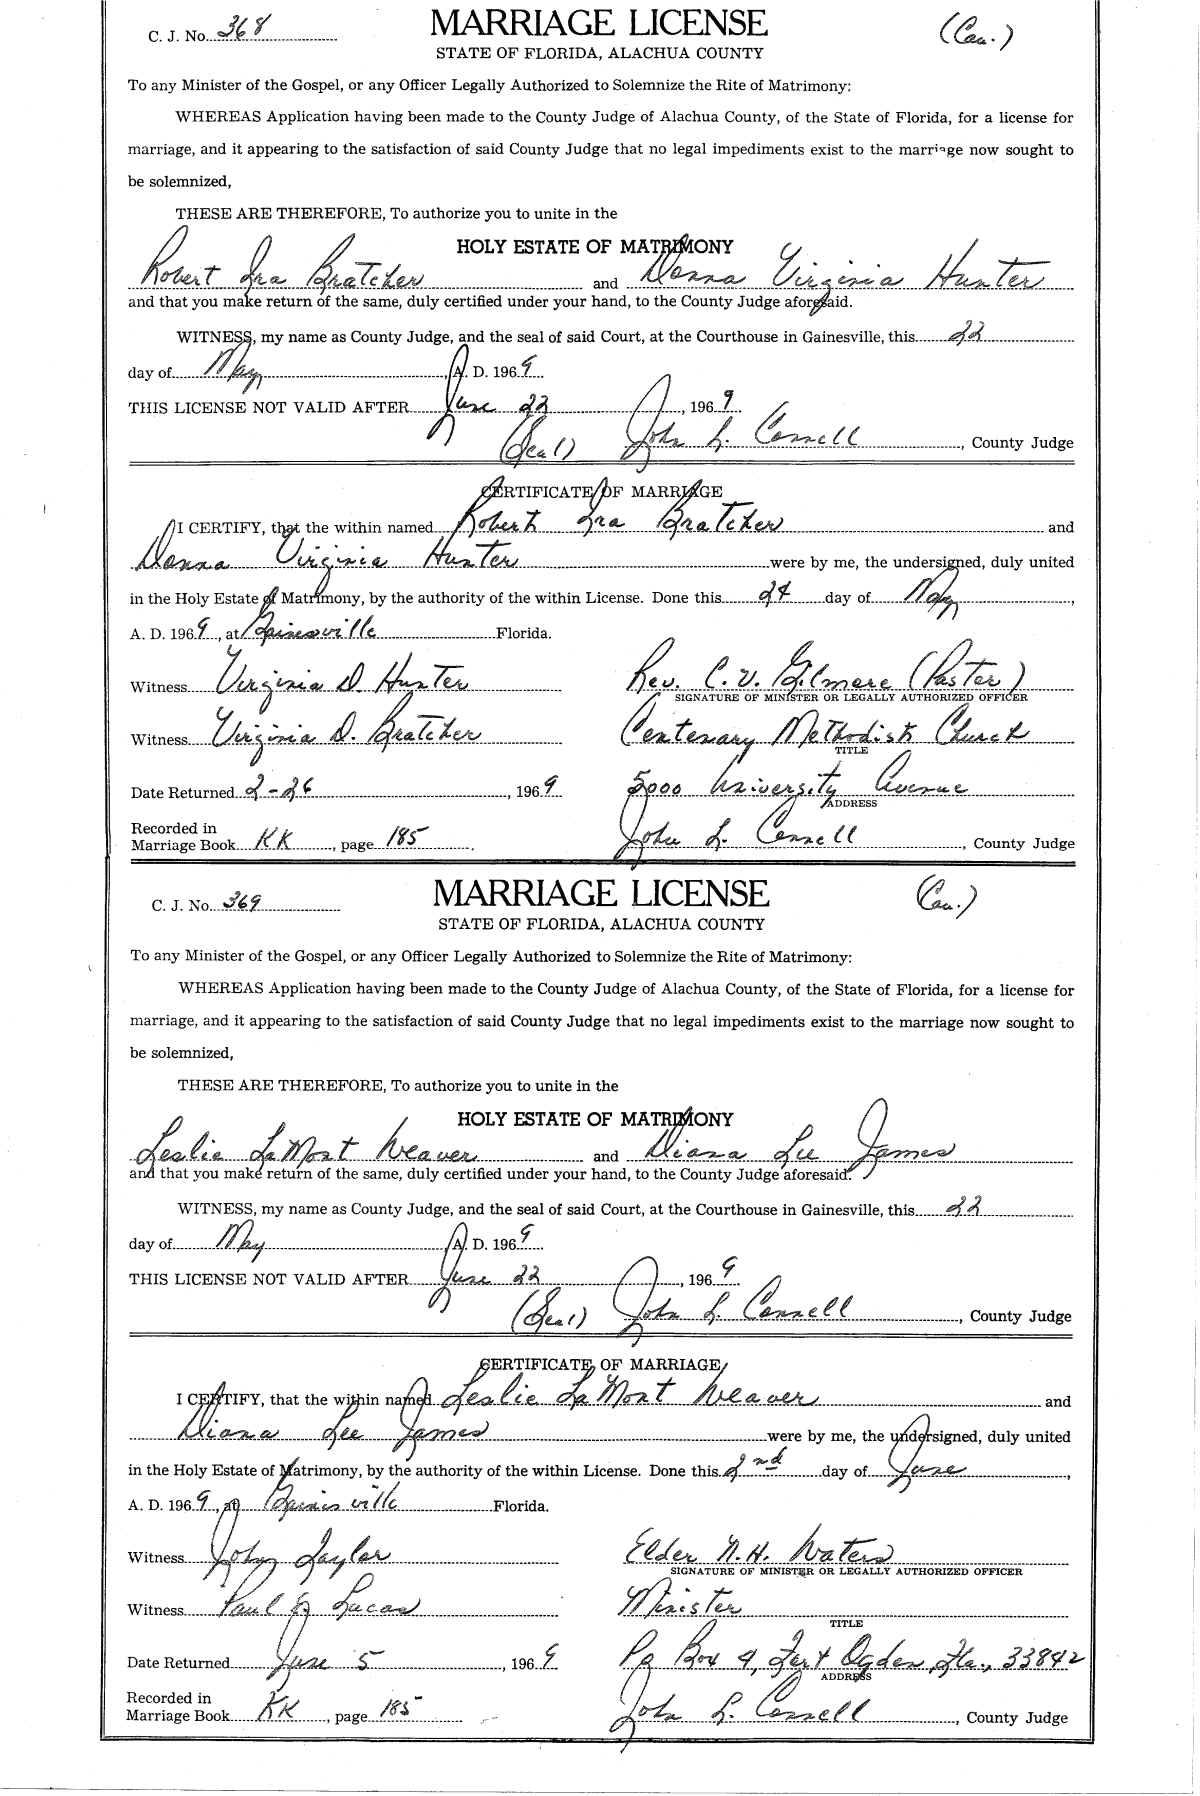 C. J. No. 368 MARRIAGE LICENSE (Cau.)
STATE OF FLORIDA, ALACHUA COUNTY
To any Minister of the Gospel, or any Officer Legally Authorized to Solemnize the Rite of Matrimony:
WHEREAS Application having been made to the County Judge of Alachua County, of the State of Florida, for a license for
marriage, and it appearing to the satisfaction of said County Judge that no legal impediments exist to the marriage now sought to
be solemnized,
THESE ARE THEREFORE, To authorize you to unite in the
HOLY ESTATE OF MATRIMONY
Robert Ira Bratcher and Donna Virginia Hunter
and that you make return of the same, duly certified under your hand, to the County Judge aforesaid.
WITNESS, my name as County Judge, and the seal of said Court, at the Courthouse in Gainesville, this 22
day of May, A. D. 1969
THIS LICENSE NOT VALID AFTER June 22, 1969
(Seal) John L. Connell, County Judge
CERTIFICATE OF MARRIAGE
I CERTIFY, that the within named Robert Ira Bratcher and
Donna Virginia Hunter were by me, the undersigned, duly united
in the Holy Estate of Matrimony, by the authority of the within License. Done this 24 day of May,
A. D. 1969, at Gainesville Florida.
Witness Virginia D. Hunter Rev. C. V. Gilmore (Pastor)
SIGNATURE OF MINISTER OR LEGALLY AUTHORIZED OFFICER
Witness Virginia D. Bratcher Centenary Methodist Church
TITLE
Date Returned 2-26, 1969 5000 University Avenue
ADDRESS
Recorded in
Marriage Book KK, page 185. John L. Connell, County Judge
C. J. No. 369 MARRIAGE LICENSE (Cau.)
STATE OF FLORIDA, ALACHUA COUNTY
To any Minister of the Gospel, or any Officer Legally Authorized to Solemnize the Rite of Matrimony:
WHEREAS Application having been made to the County Judge of Alachua County, of the State of Florida, for a license for
marriage, and it appearing to the satisfaction of said County Judge that no legal impediments exist to the marriage now sought to
be solemnized,
THESE ARE THEREFORE, To authorize you to unite in the
HOLY ESTATE OF MATRIMONY
Leslie LaMont Weaver and Diana Lee James
and that you make return of the same, duly certified under your hand, to the County Judge aforesaid.
WITNESS, my name as County Judge, and the seal of said Court, at the Courthouse in Gainesville, this 22
day of May A. D. 1969
THIS LICENSE NOT VALID AFTER June 22, 1969
(Seal) John L. Connell, County Judge
CERTIFICATE OF MARRIAGE
I CERTIFY, that the within named Leslie LaMont Weaver and
Diana Lee James were by me, the undersigned, duly united
in the Holy Estate of Matrimony, by the authority of the within License. Done this 2nd day of June,
A. D. 1969, at Gainesville Florida.
Witness John Taylor Elder N. H. Waters
SIGNATURE OF MINISTER OR LEGALLY AUTHORIZED OFFICER
Witness Paul J Lucas Minister
TITLE
Date Returned June 5, 1969 Po Box 9, Fort Ogden, Fla., 33842
ADDRESS
Recorded in
Marriage Book KK, page 185 John L. Connell, County Judge